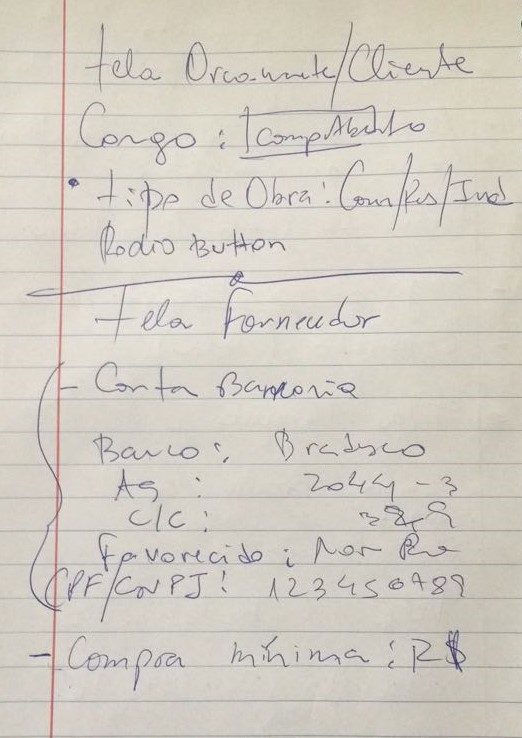 tela Orcamento/Cliente
Cargo: CompAberto
• tipo de Obra: Com/Res/Ind
Radio Button
tela Fornecedor
- Conta Bancaria
Banco: Bradesco
Ag: 2044-3
C/C:
Favorecido:
CPF/CNPJ: 123456789
- Compra mínima: R$